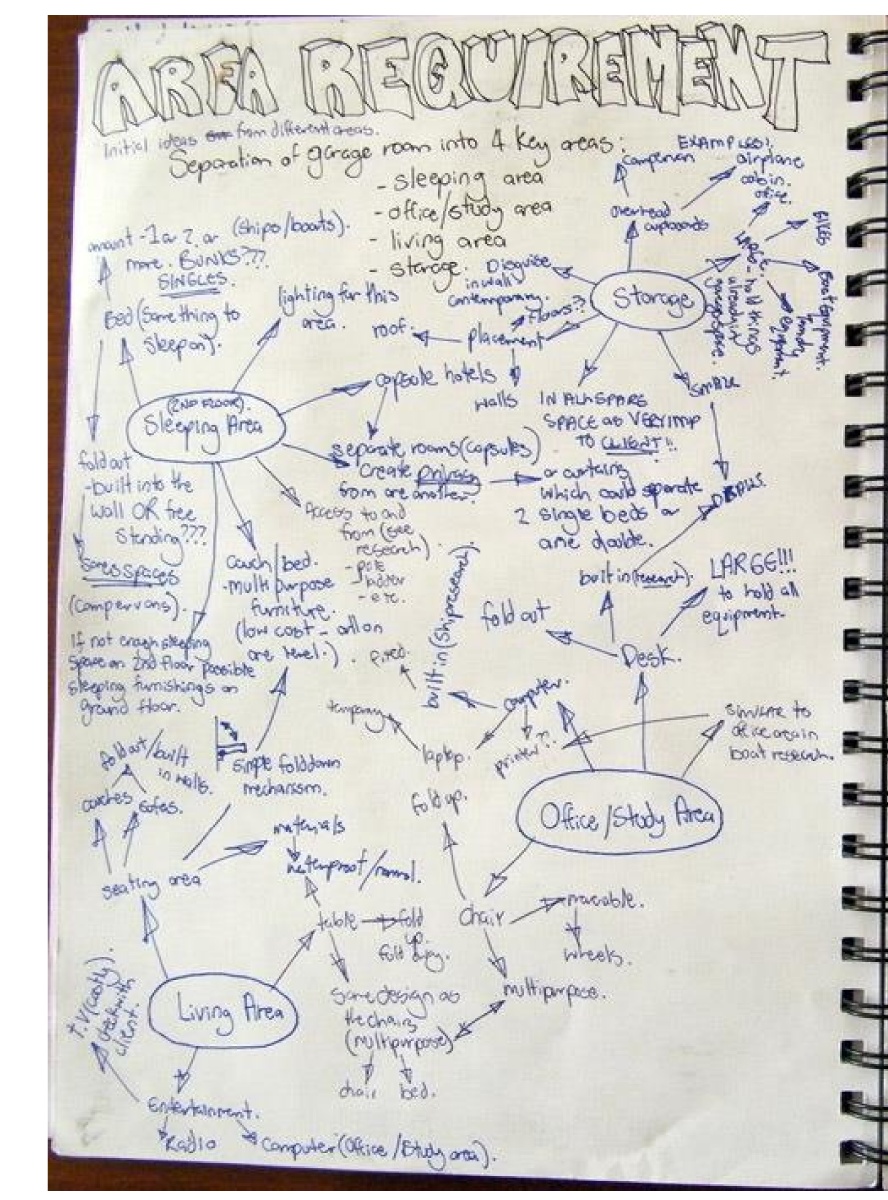 AREA REQUIREMENT
Initial ideas from different areas.
Separation of garage room into 4 key areas:
- sleeping area
- office/study area
- living area
- storage.
EXAMPLES!
campervan
airplane
cabin.
office.
overhead
cupboards
BIKES
LARGE - to hold things
already in
garage space.
Boat Equipment.
laundry
equipment.
Storage
Disguise
in wall
contemporary.
floors??
placement
roof.
walls
IN ALL SPARE
SPACE AS VERY IMP
TO CLIENT!!
SMALL
amount - 1 or 2 or (ships/boats).
more. BUNKS???
SINGLES.
Bed (something to
sleep on).
lighting for this
area.
(2ND FLOOR).
Sleeping Area
capsule hotels
separate rooms (capsules)
create privacy
from one another?
or curtains
which could separate
2 single beds or
one double.
fold out
- built into the
wall OR free
standing???
Saves spaces
(campervans).
Access to and
from (see
research).
- pole
- ladder
- etc.
couch/bed.
- multi purpose
furniture.
(low cost - all on
one level.).
If not enough sleeping
space on 2nd floor possible
sleeping furnishings on
ground floor.
built in (research).
LARGE!!!
to hold all
equipment.
fold out
Desk.
built in (Ship research).
fixed.
computer.
temporary
laptop.
printer?.
SIMILAR to
office area in
boat research.
Office/Study Area
fold up.
chair
moveable.
wheels.
multipurpose.
fold out/built
in walls.
couches sofas.
simple fold down
mechanism.
seating area
materials
waterproof/normal.
table
fold
up.
Same design as
the chairs
(multipurpose)
chair bed.
Living Area
T.V (costly)
check with
client.
Entertainment.
Radio
Computer (Office/Study area).